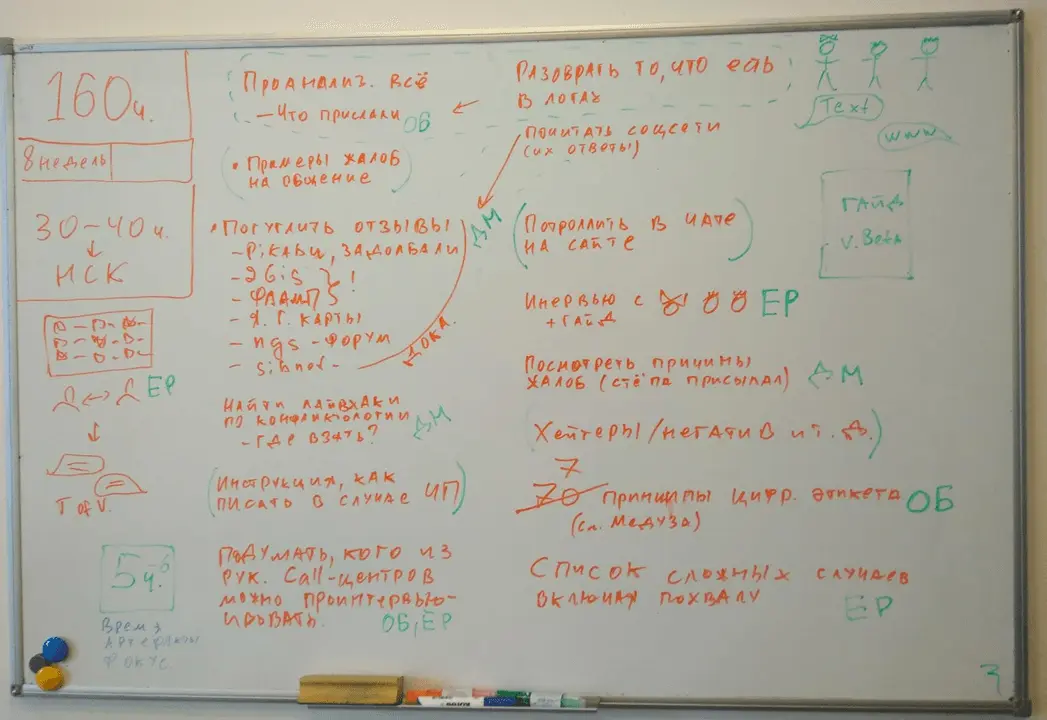 160ч.
8 недель
30-40ч.
НСК
ЕР
T of V.
5ч.-6
Время
Артефакты
Фокус
Проанализ. всё
- Что прислали ОБ
• Примеры жалоб
на общение
• Погуглить отзывы ДМ
- Pikabu, задолбали
- 2Gis } !
- Фламп
- Я. Г. карты
- ngs - форум
- sibnet -
Дока.
Найти лайфхаки
по конфликтологии
- где взять? ДМ
(Инструкция, как
писать в случае ЧП)
Подумать, кого из
рук. Call-центров
можно проинтервью-
ировать. ОБ, ЕР
Разобрать то, что есть
в логах
Почитать соцсети
(их ответы)
(Потроллить в чате
на сайте)
Инервью с ЕР
+ гайд
Посмотреть причины
жалоб (Стёпа присылал) ДМ
Хейтеры/негатив и т. д.)
7
70 принципы цифр. этикета ОБ
(см. Медуза)
Список сложных случаев
включая похвалу
ЕР
Text
www
Гайд
v. Beta